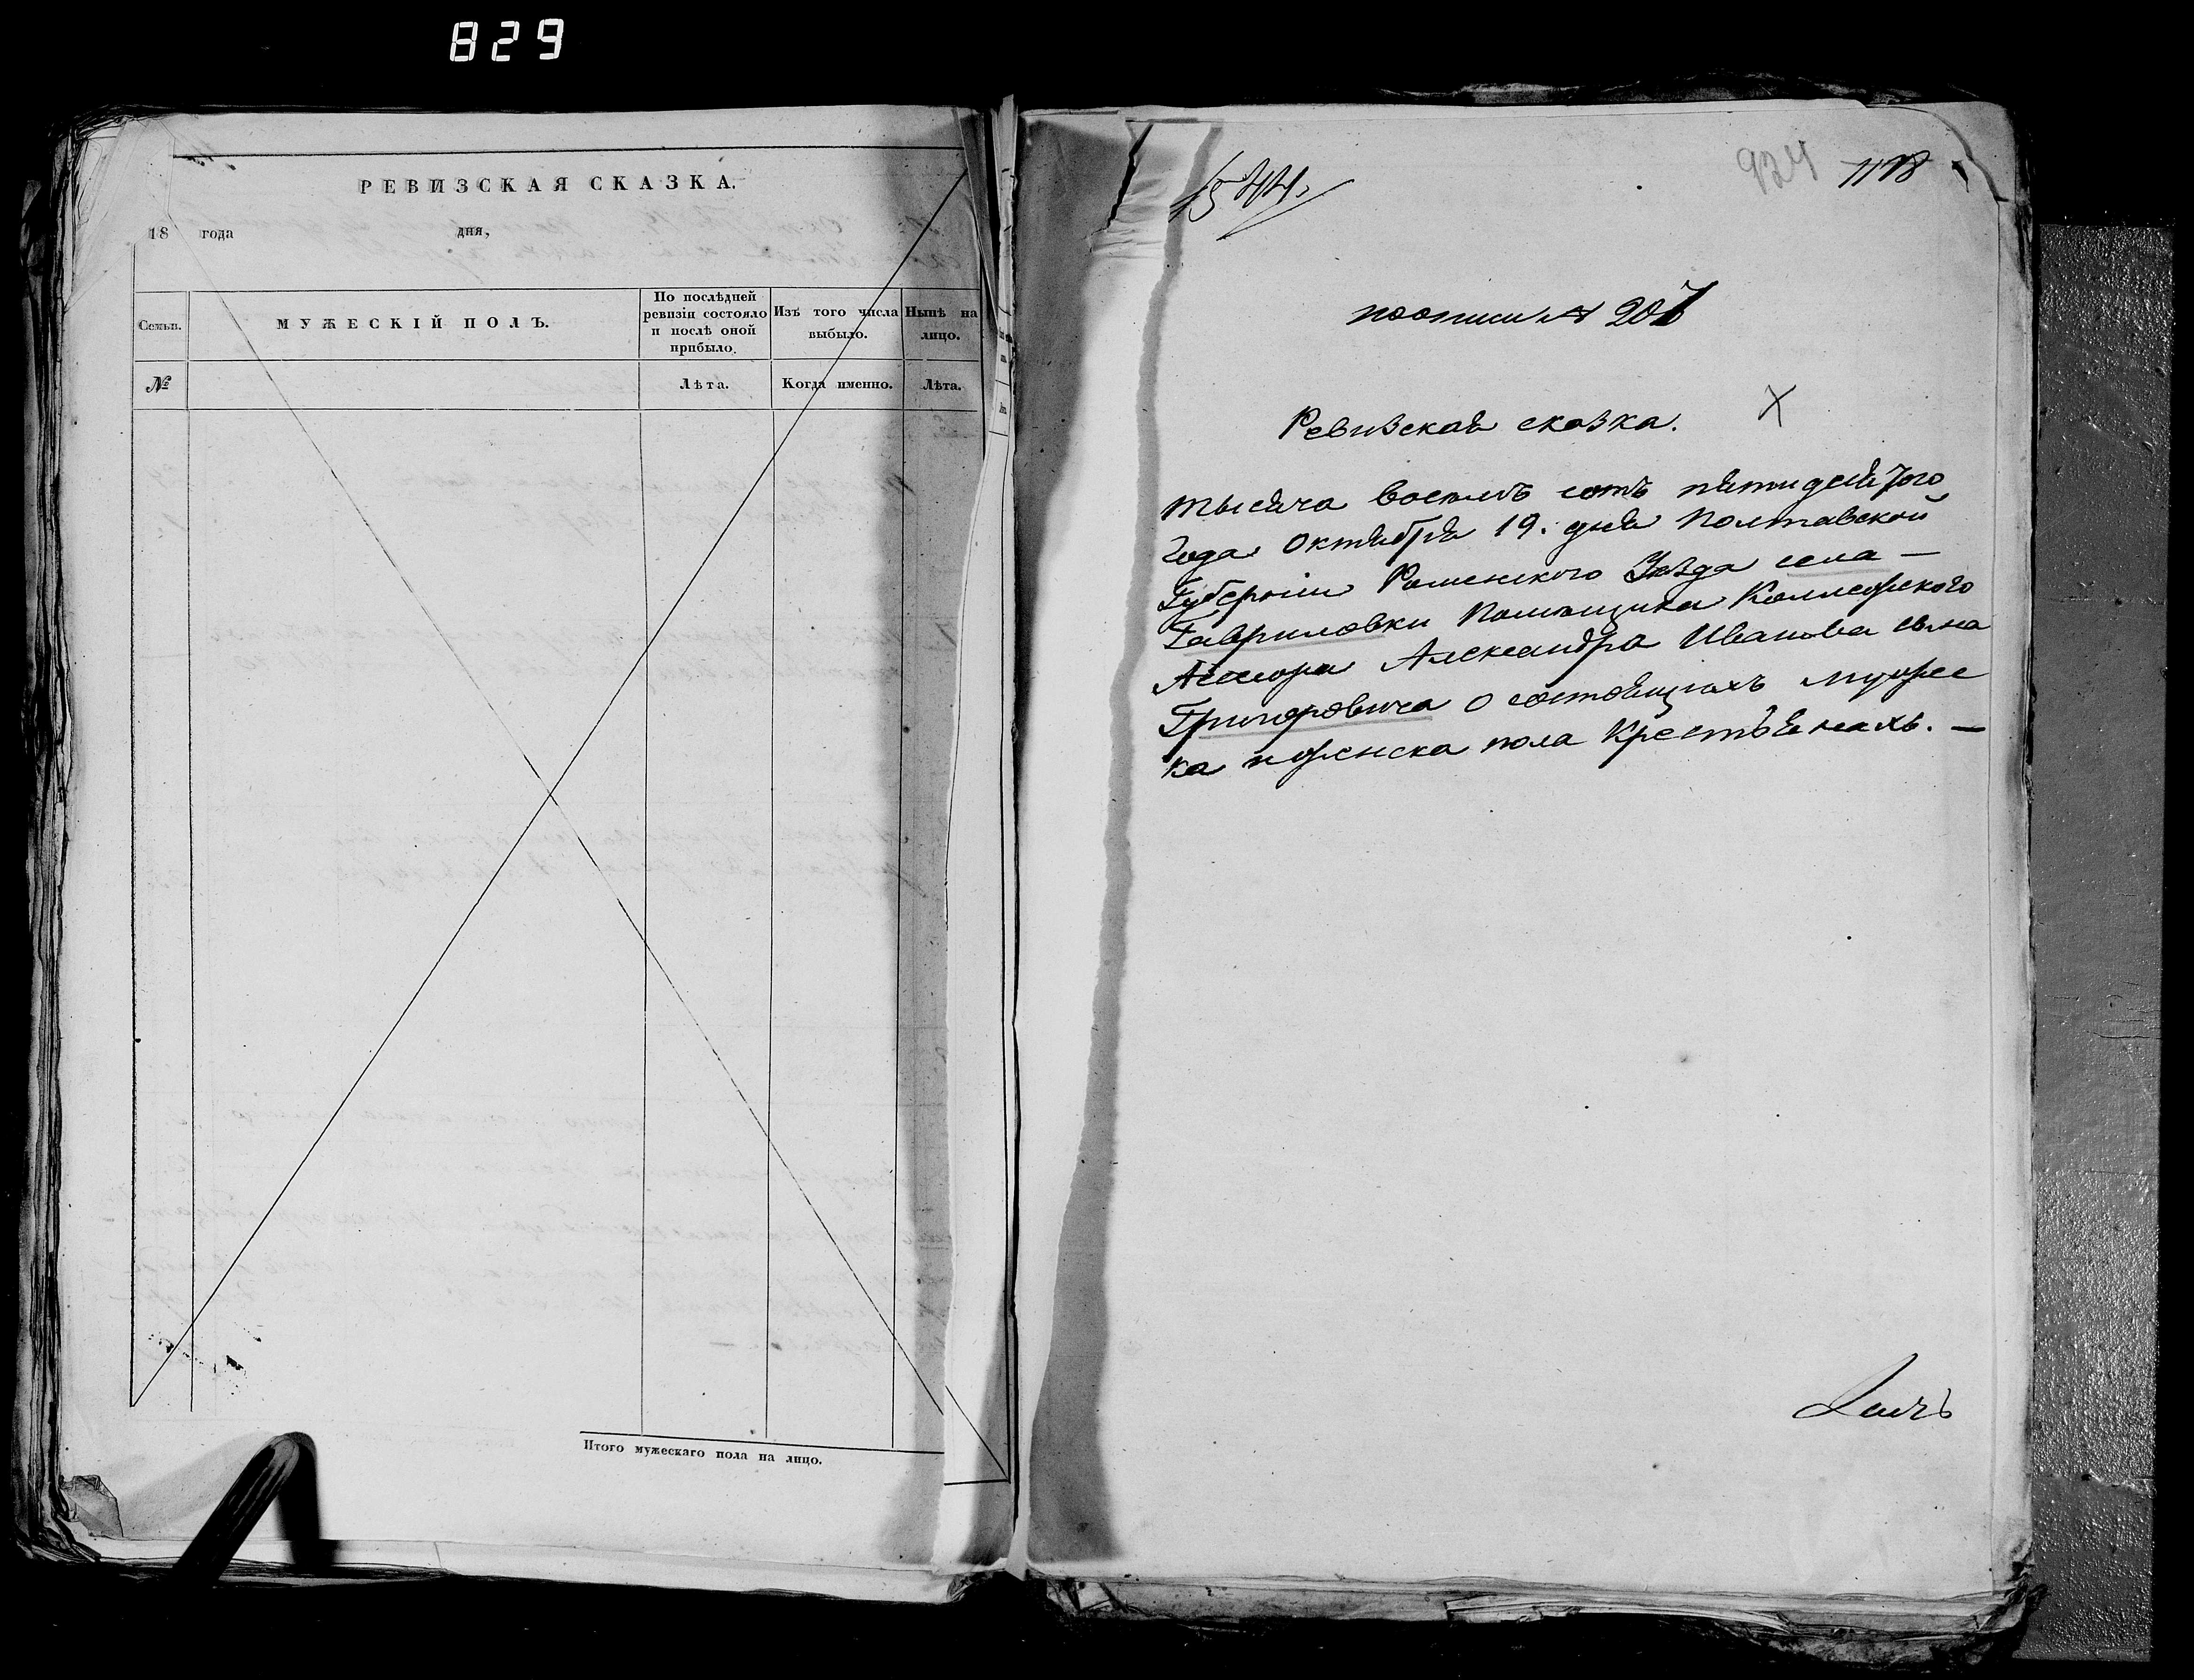 829
РЕВИЗСКАЯ СКАЗКА.
18 года дня,
Семьи.
МУЖЕСКІЙ ПОЛЪ.
По послѣдней
ревизіи состояло
и послѣ оной
прибыло.
Изъ того числа
выбыло.
Нынѣ на
лицо.
№
Лѣта.
Когда именно.
Лѣта.
Итого мужескаго пола на лицо.
924 1118
1544.
поописи № 207
Ревизская сказка.
тысяча восемъ сотъ пятидесятого
года октября 19. дня Полтавской
Губерніи Роменского Уѣзда села —
Гавриловки Помѣщика Колежского
Асесора Александра Иванова сына
Григоровича о состоящихъ мужес
ка и женска пола Крестьянахъ. —